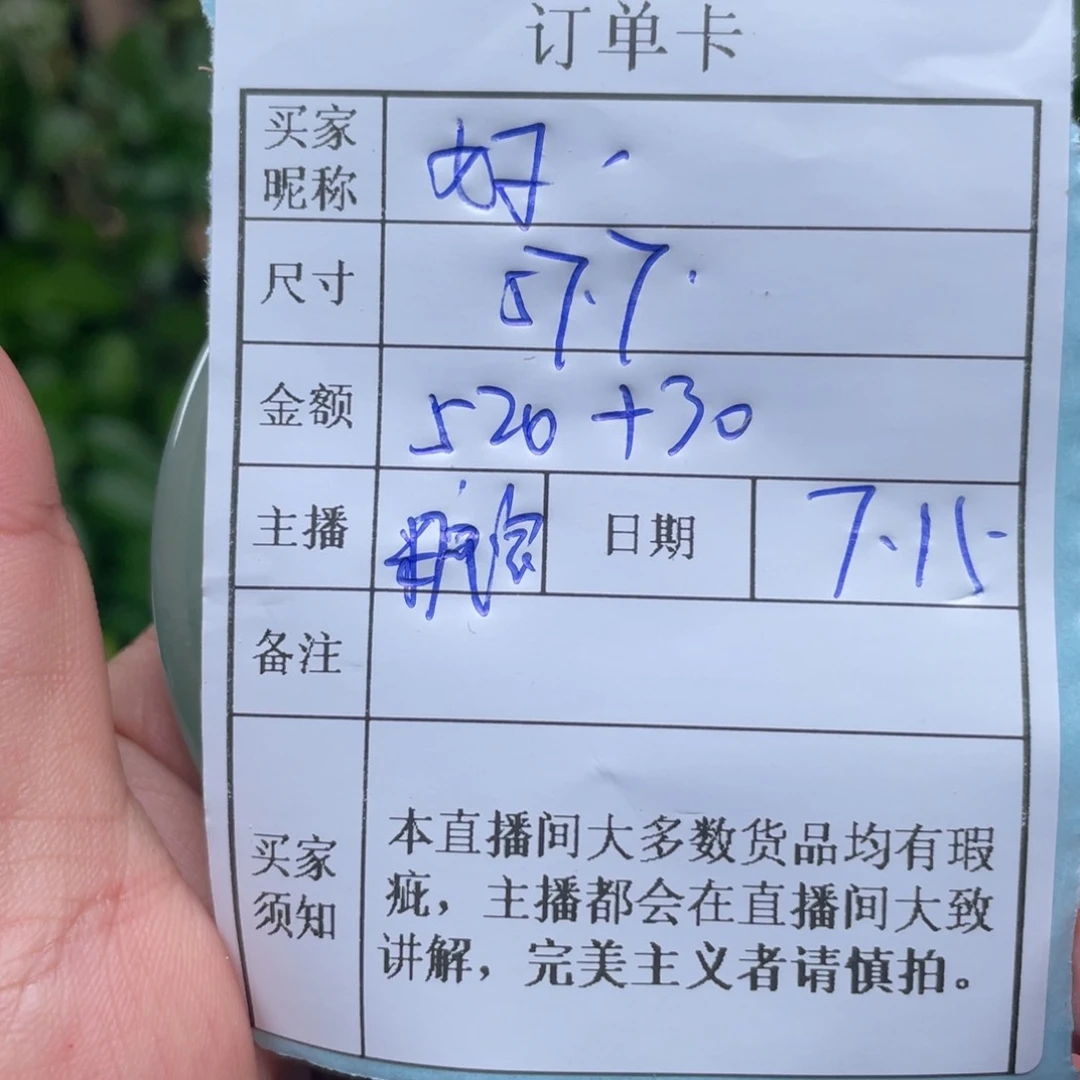 订单卡
买家昵称 好.
尺寸 57.7.
金额 520+30
主播 日期 7.15
备注
买家须知 本直播间大多数货品均有瑕
疵，主播都会在直播间大致
讲解，完美主义者请慎拍。